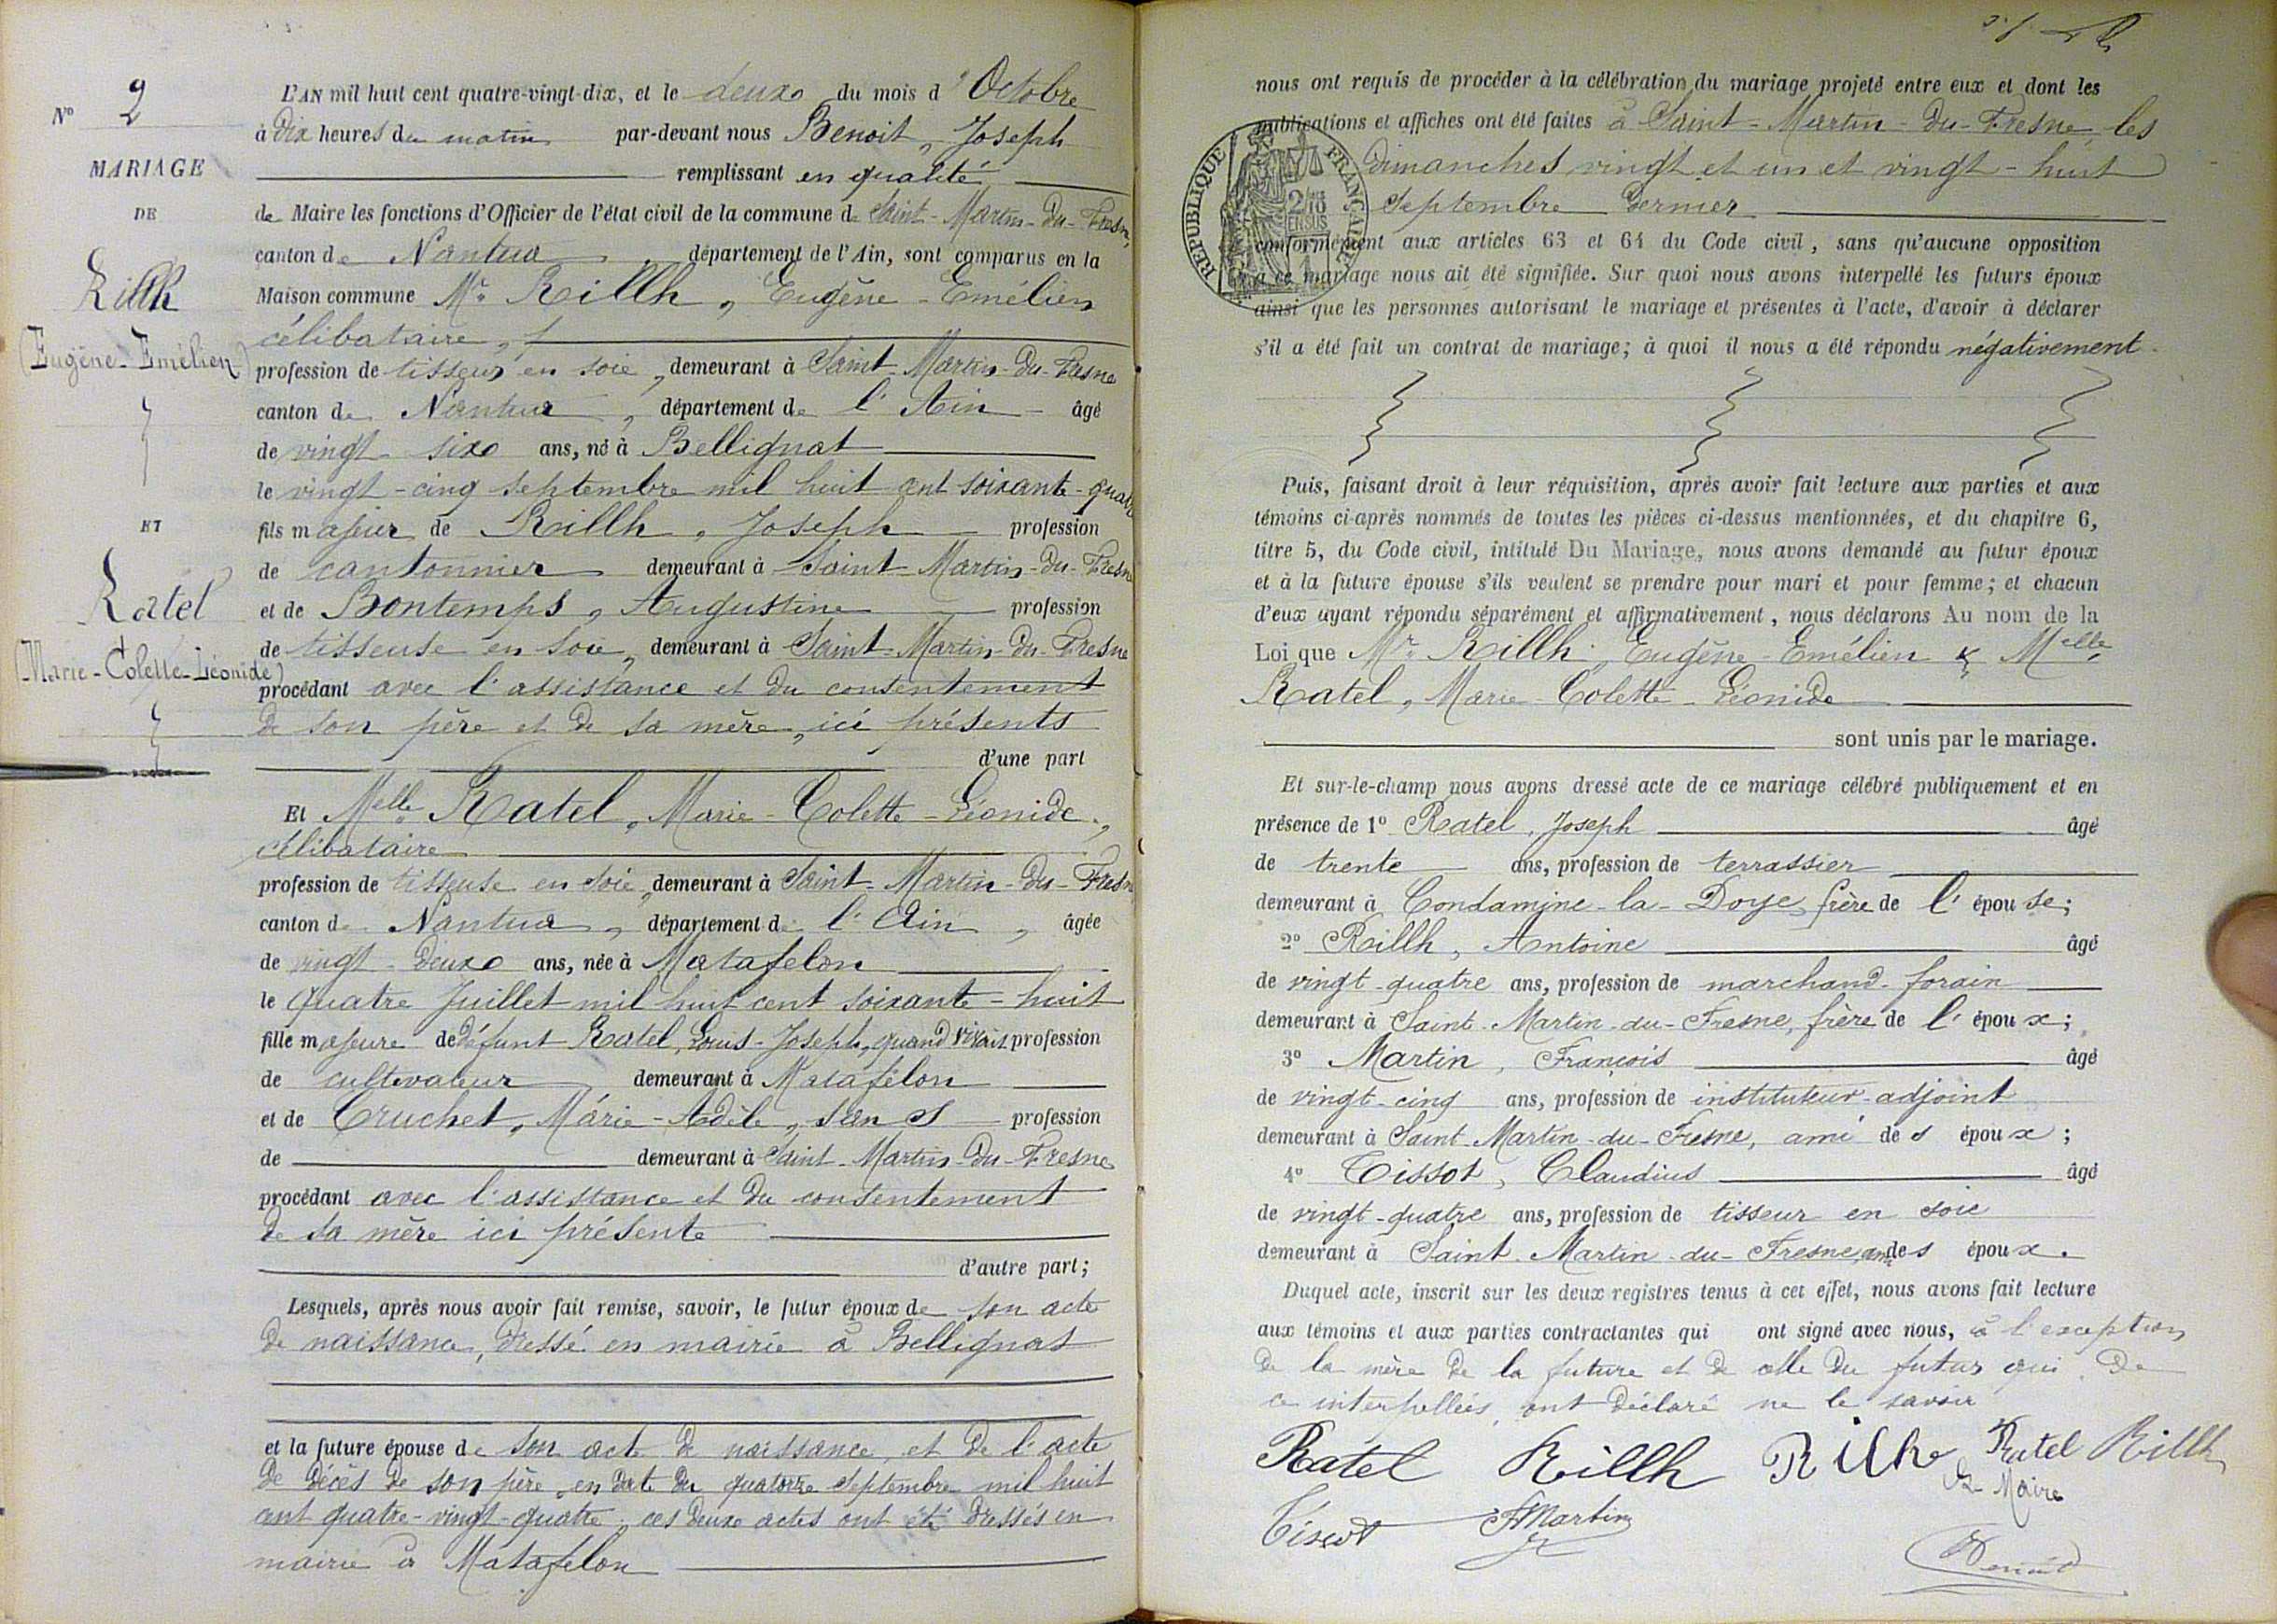 N° 2
MARIAGE
DE
Rillh
(Eugène-Emélien)
ET
Ratel
(Marie-Colette-Léonide)
L'AN mil huit cent quatre-vingt-dix, et le deux du mois d'Octobre
à dix heures du matin par-devant nous Benoit, Joseph
remplissant en qualité
de Maire les fonctions d'Officier de l'état civil de la commune de Saint-Martin-du-Fresne,
canton de Nantua, département de l'Ain, sont comparus en la
Maison commune Mr. Rillh, Eugène-Emélien
célibataire,
profession de tisseur en soie, demeurant à Saint-Martin-du-Fresne
canton de Nantua, département de l'Ain âgé
de vingt-six ans, né à Bellignat
le vingt-cinq septembre mil huit cent soixante-quatre
fils majeur de Rillh, Joseph profession
de cantonnier demeurant à Saint-Martin-du-Fresne
et de Bontemps, Augustine profession
de tisseuse en soie, demeurant à Saint-Martin-du-Fresne
procédant avec l'assistance et du consentement
de son père et de sa mère, ici présents
d'une part
Et Melle Ratel, Marie-Colette-Léonide,
célibataire
profession de tisseuse en soie, demeurant à Saint-Martin-du-Fresne
canton de Nantua, département de l'Ain, âgée
de vingt-deux ans, née à Matafelon
le quatre Juillet mil huit cent soixante-huit
fille majeure de défunt Ratel, Louis-Joseph, quand vivait profession
de cultivateur, demeurant à Matafelon
et de Cruchet, Marie-Adèle, sans profession
de demeurant à Saint-Martin-du-Fresne
procédant avec l'assistance et du consentement
de sa mère ici présente
d'autre part;
Lesquels, après nous avoir fait remise, savoir, le futur époux de son acte
de naissance, dressé en mairie à Bellignat
et la future épouse de son acte de naissance, et de l'acte
de décès de son père, en date du quatorze septembre mil huit
cent quatre-vingt-quatre; ces deux actes ont été dressés en
mairie à Matafelon
nous ont requis de procéder à la célébration du mariage projeté entre eux et dont les
publications et affiches ont été faites à Saint-Martin-du-Fresne les
dimanches vingt et un et vingt-huit
septembre dernier
RÉPUBLIQUE FRANÇAISE
conformément aux articles 63 et 64 du Code civil, sans qu'aucune opposition
à ce mariage nous ait été signifiée. Sur quoi nous avons interpellé les futurs époux
ainsi que les personnes autorisant le mariage et présentes à l'acte, d'avoir à déclarer
s'il a été fait un contrat de mariage; à quoi il nous a été répondu négativement.
Puis, faisant droit à leur réquisition, après avoir fait lecture aux parties et aux
témoins ci-après nommés de toutes les pièces ci-dessus mentionnées, et du chapitre 6,
titre 5, du Code civil, intitulé Du Mariage, nous avons demandé au futur époux
et à la future épouse s'ils veulent se prendre pour mari et pour femme; et chacun
d'eux ayant répondu séparément et affirmativement, nous déclarons Au nom de la
Loi que Mr. Rillh, Eugène-Emélien & Melle
Ratel, Marie-Colette-Léonide
sont unis par le mariage.
Et sur-le-champ nous avons dressé acte de ce mariage célébré publiquement et en
présence de 1° Ratel, Joseph âgé
de trente ans, profession de terrassier
demeurant à Condamine-la-Doye, frère de l'épouse;
2° Rillh, Antoine âgé
de vingt-quatre ans, profession de marchand-forain
demeurant à Saint-Martin-du-Fresne, frère de l'époux;
3° Martin, François âgé
de vingt-cinq ans, profession de instituteur-adjoint
demeurant à Saint-Martin-du-Fresne, ami des époux;
4° Tissot, Claudius âgé
de vingt-quatre ans, profession de tisseur en soie
demeurant à Saint-Martin-du-Fresne, ami des époux.
Duquel acte, inscrit sur les deux registres tenus à cet effet, nous avons fait lecture
aux témoins et aux parties contractantes qui ont signé avec nous, à l'exception
de la mère de la future et de celle du futur qui, de
ce interpellées, ont déclaré ne le savoir
Ratel Rillh Rillh Ratel Rillh
Le Maire
Tissot FMartin
Benoit